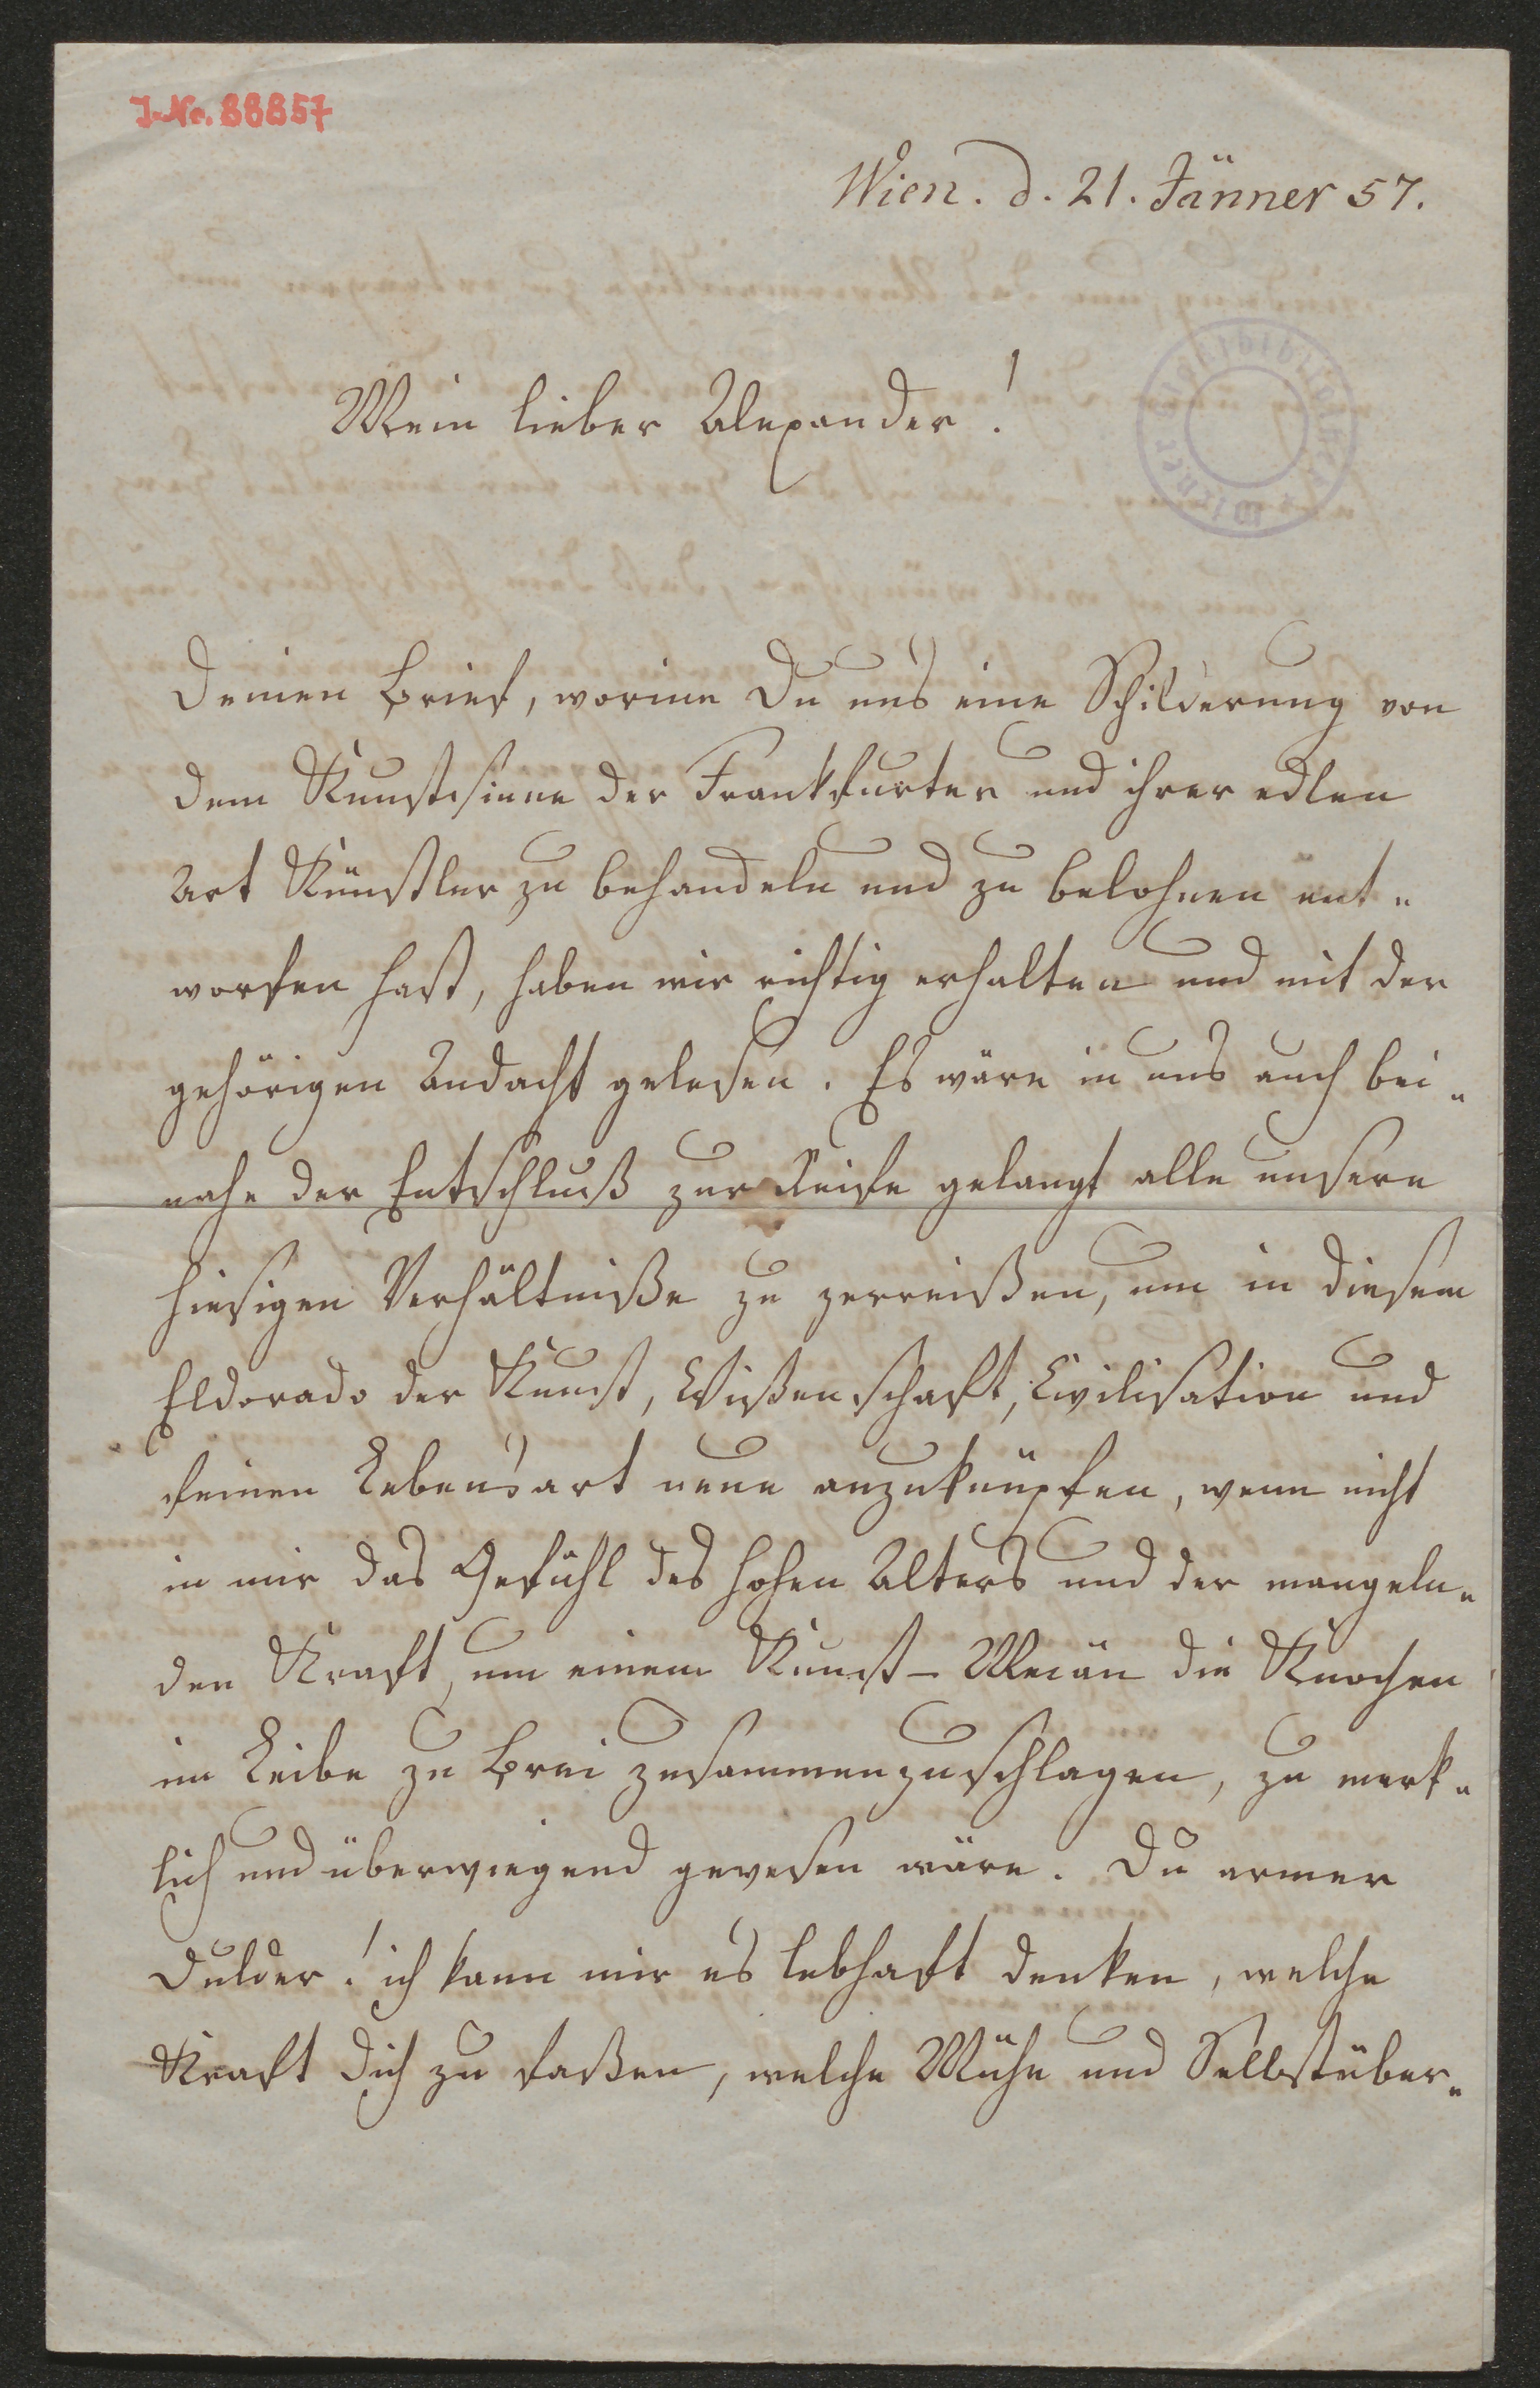 J.-No. 88857
Wien. d. 21. Jänner 57.
Wiener Stadtbibliothek
Mein lieber Alexander!
Deinen Brief, worinn Du uns eine Schilderung von
dem Kunstsinne der Frankfurter und ihrer edlen
Art Künstler zu behandeln und zu belohnen ent-
worfen hast, haben wir richtig erhalten und mit der
gehörigen Andacht gelesen. Es wäre in uns auch bei-
nahe der Entschluß zur Reife gelangt alle unsere
hiesigen Verhältniße zu zerreißen, um in diesem
Eldorado der Kunst, Wißenschaft, Civilisation und
feinen Lebensart neue anzuknüpfen, wenn nicht
in mir das Gefühl des hohen Alters und der mangeln-
den Kraft, um einem Kunst-Mecän die Knochen
im Leibe zu Brei zusammenzuschlagen, zu merk-
lich und überwiegend gewesen wäre. Du armer
Dulder! ich kann mir es lebhaft denken, welche
Kraft Dich zu faßen, welche Mühe und Selbstüber-